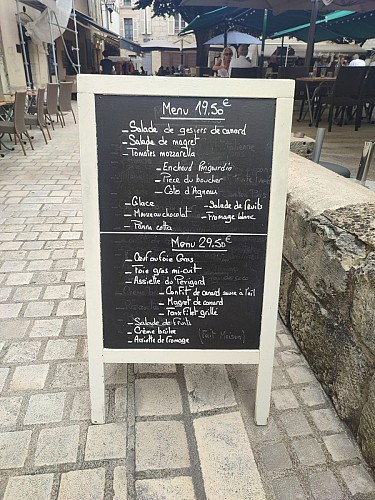 Menu 19,50€
- Salade de gesiers de canard
- Salade de magret
- Tomates mozzarella
- Enchaud Périgourdin
- Pièce du boucher
- Côtes d'Agneau
- Glace - Salade de fruits
- Mousse chocolat - Fromage blanc
- Panna cotta
Menu 29,50€
- Oeuf au foie Gras
- Foie gras mi-cuit
- Assiette du Périgord
- Confit de canard sauce à l'ail
- Magret de canard
- Faux Filet grillé
- Salade de Fruits
- Crème brûlée
- Assiette de Fromage
(Fait Maison)